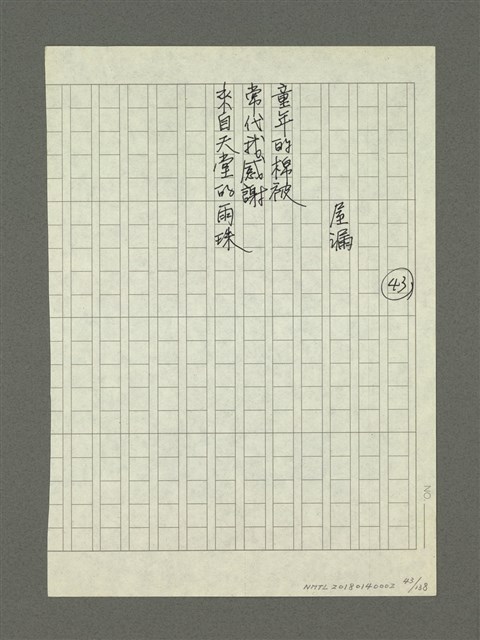 43
屋漏
童年的棉被
常代我感謝
來自天堂的雨珠
NO
NMTL 20180140002 43/168